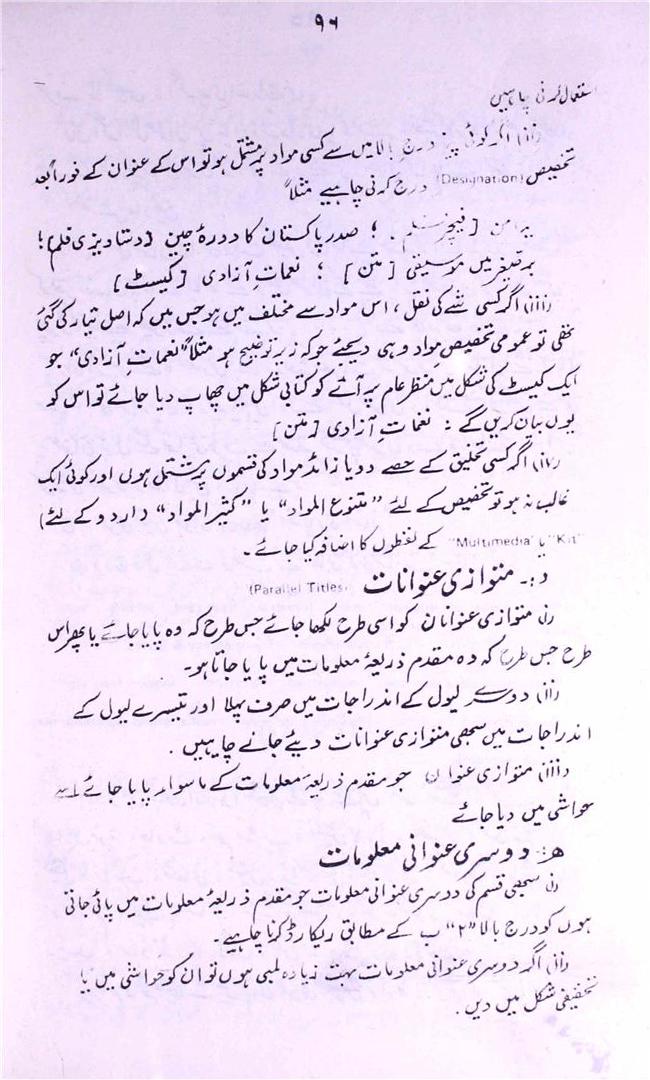 ۹۶
استعمال کرنی چاہییں
(ii) اگر کوئی چیز درج بالا میں سے کسی مواد پر مشتمل ہو تو اس کے عنوان کے فوراً بعد
تخصیص (Designation) درج کرنی چاہیے مثلاً
[فیچر فلم] ؛ صدر پاکستان کا دورۂ چین [دستاویزی فلم] ؛
برصغیر میں موسیقی [متن] ؛ نغماتِ آزادی [کیسٹ]
(iii) اگر کسی شے کی نقل ، اس مواد سے مختلف میں ہو جس میں کہ اصل تیار کی گئی
تھی تو عمومی تخصیصِ مواد وہی دیجئے جو کہ زیر توضیح ہو مثلاً "نغمات آزادی" جو
ایک کیسٹ کی شکل میں منظر عام پر آئے کو کتابی شکل میں چھاپ دیا جائے تو اس کو
یوں بیان کریں گے : نغماتِ آزادی [متن]
(iv) اگر کسی تخلیق کے حصے دو یا زائد مواد کی قسموں پر مشتمل ہوں اور کوئی ایک
غالب نہ ہو تو تخصیص کے لئے "متنوع المواد" یا "کثیر المواد" (اردو کے لئے)
"Kit" یا "Multimedia" کے لفظوں کا اضافہ کیا جائے۔
د :۔ متوازی عنوانات (Parallel Titles)
(i) متوازی عنوانان کو اسی طرح لکھا جائے جس طرح کہ وہ پایا جائے یا پھر اس
طرح جس طرح کہ وہ مقدم ذریعۂ معلومات میں پایا جاتا ہو۔
(ii) دوسرے لیول کے اندراجات میں صرف پہلا اور تیسرے لیول کے
اندراجات میں سبھی متوازی عنوانات دیئے جانے چاہیں ۔
(iii) متوازی عنوان جو مقدم ذریعۂ معلومات کے ماسواء پایا جائے اسے
حواشی میں دیا جائے
ھ :۔ دوسری عنوانی معلومات
(i) سبھی قسم کی دوسری عنوانی معلومات جو مقدم ذریعۂ معلومات میں پائی جاتی
ہوں کو درج بالا "۲" ب کے مطابق ریکارڈ کرنا چاہیے۔
(ii) اگر دوسری عنوانی معلومات بہت زیادہ لمبی ہوں تو ان کو حواشی میں یا
تخفیفی شکل میں دیں ۔